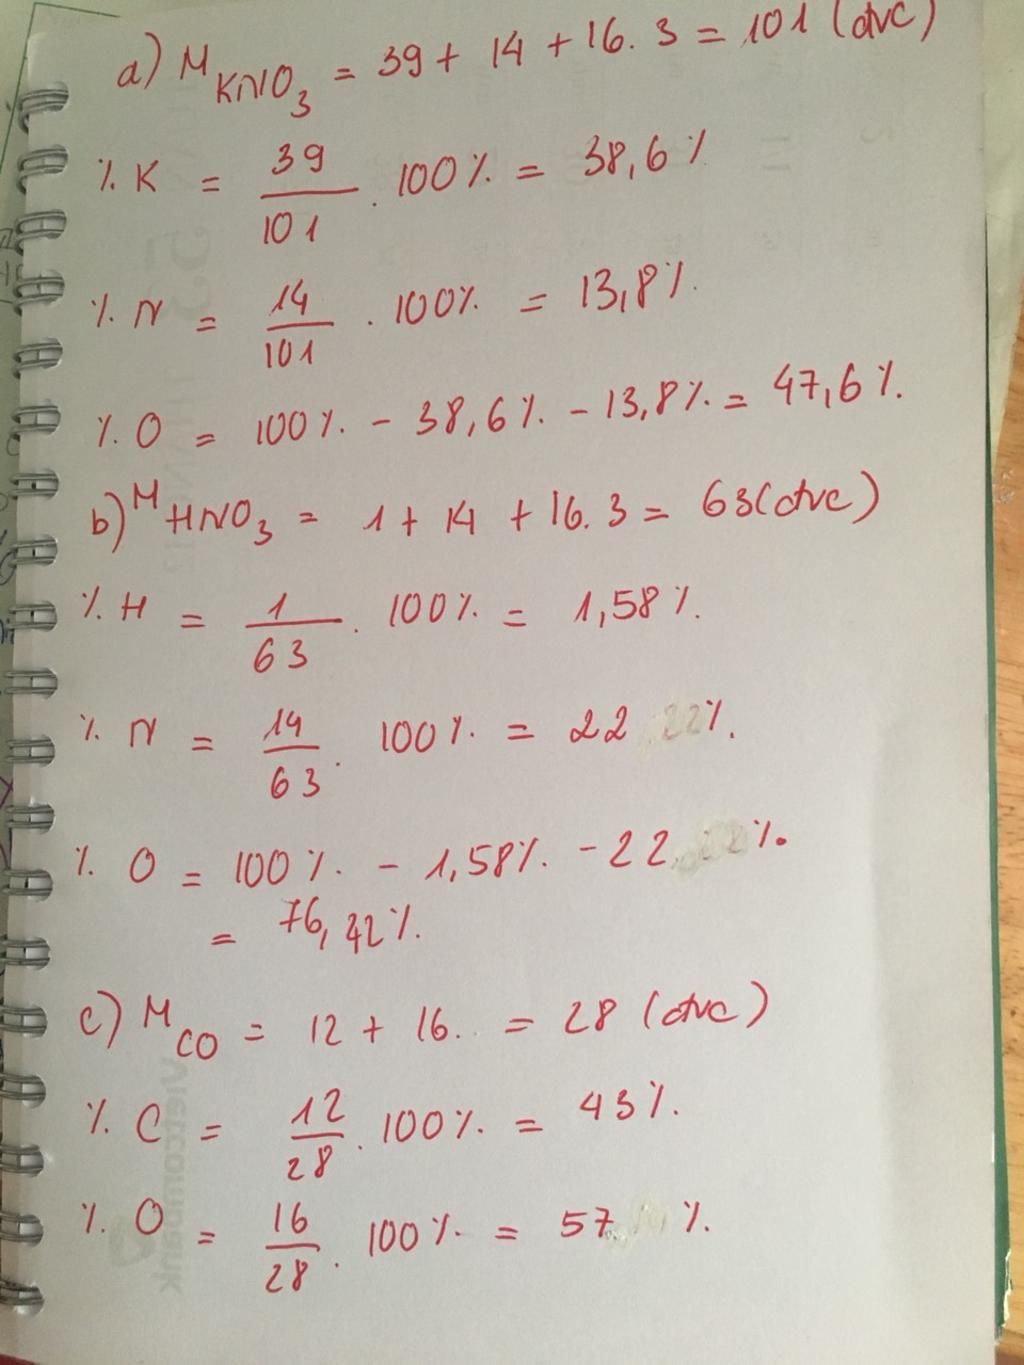 a) M KNO3 = 39 + 14 + 16. 3 = 101 (đvc)
% K = 39/101 . 100% = 38,6%
% N = 14/101 . 100% = 13,8%
% O = 100% - 38,6% - 13,8% = 47,6%.
b) M HNO3 = 1 + 14 + 16. 3 = 63 (đvc)
% H = 1/63 . 100% = 1,58%.
% N = 14/63 . 100% = 22 %.
% O = 100% - 1,58% - 22 %.
= 76,42%.
c) M CO = 12 + 16. = 28 (đvc)
% C = 12/28 . 100% = 43%.
% O = 16/28 . 100% = 57 %.
Vietcombank